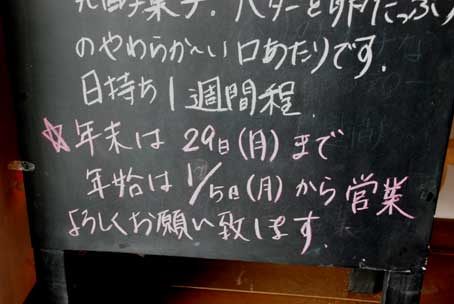 菓子. バターと卵たっぷり
のやわらか〜い口あたりです.
日持ち1週間程.
☆年末は 29日(月)まで
年始は 1/5日(月)から営業
よろしくお願い致します.